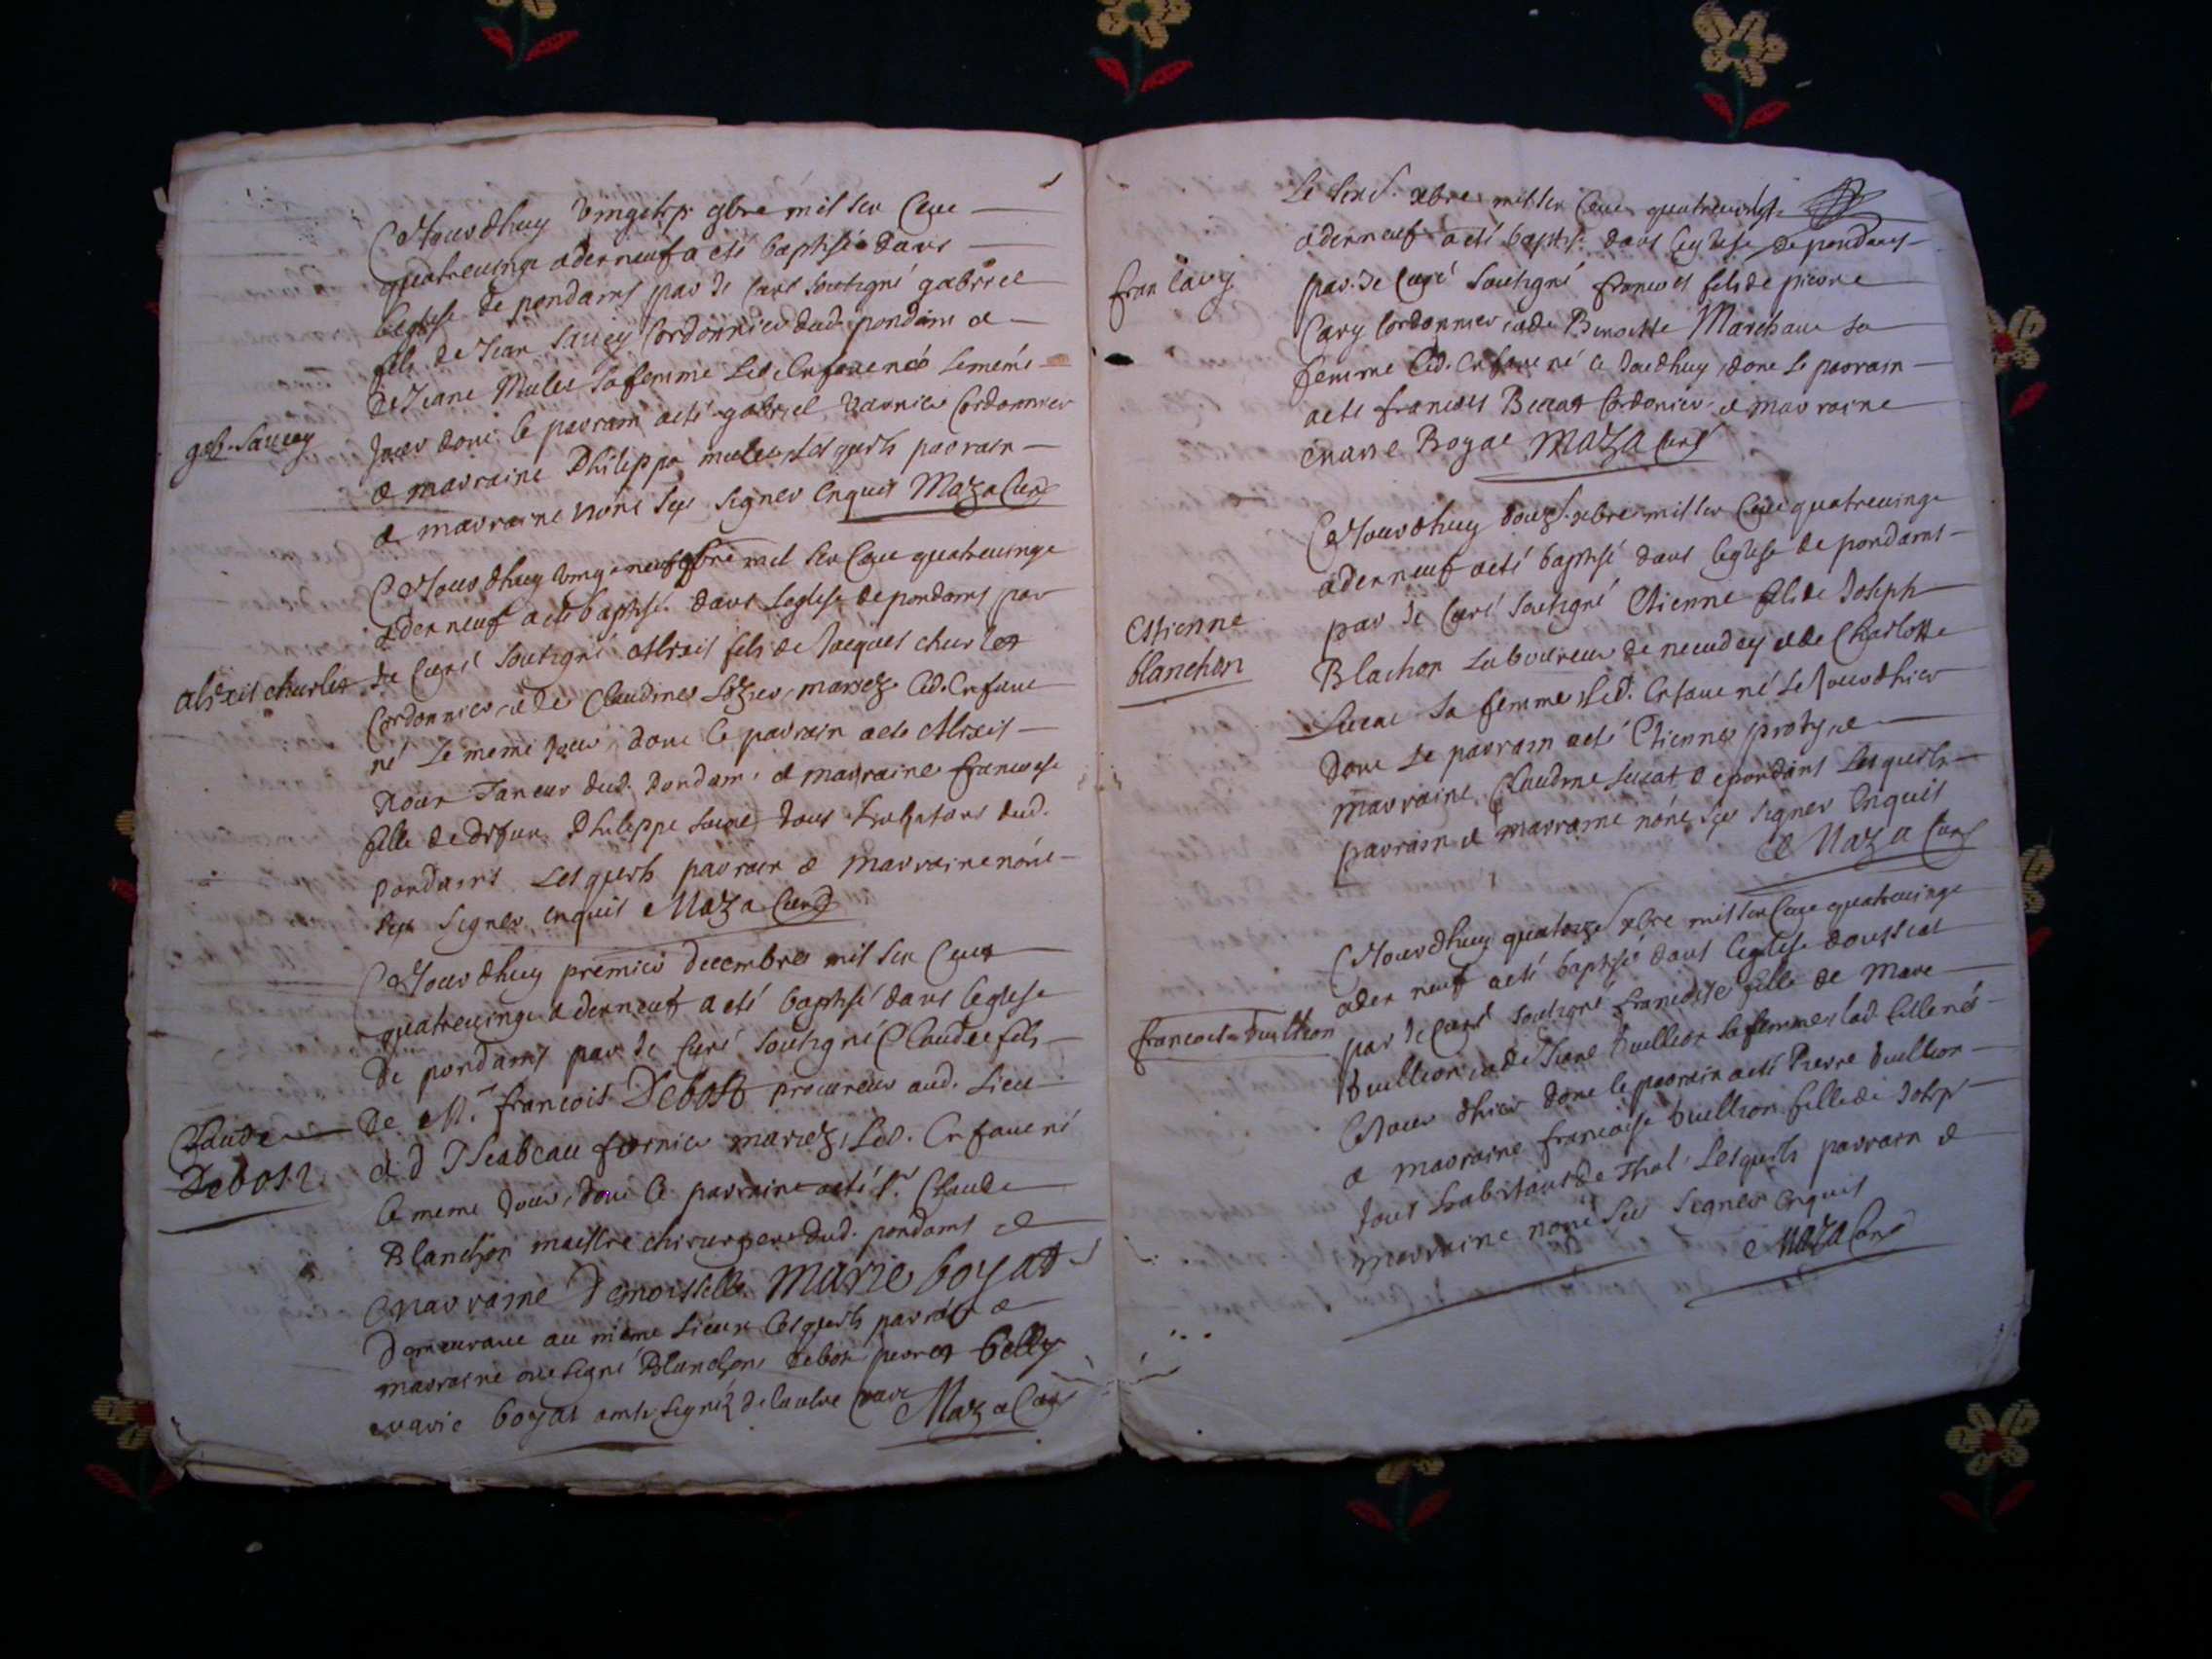 Cejourdhuy vingtsp 9bre mil six Cent
quatrevingt & dixneuf a eté baptisé dans
leglise de pondains par Je curé soussigné gabriel
fils de Jean Saucey Cordonnier dud. pondains &
de Jeane Mulet sa femme led. Enfant né le meme
gab. Saucey
Jour dont le parrain a eté gabriel Cordonnier
& marraine Philippa mulet lesquels parrain
& marraine nont sceu signer Enquis Maza Curé
Cejourdhuy vingt neuf 9bre mil six Cent quatrevingt
& dixneuf a eté baptisé dans leglise de pondains par
alexis churlet
Je Curé soussigné Alexis fils de Jacques churlet
Cordonnier & de Claudine mariez led. Enfant
né le meme Jour, dont le parrain a eté Alexis
Taneur dud. pondains & marraine francoise
fille de defun Philippe tous habitans dud.
pondains Lesquels parrain & marraine nont
sceu signer enquis Maza Curé
Cejourdhuy premier decembre mil six Cent
quatrevingt & dixneuf a eté baptisé dans leglise
de pondains par Je Curé soussigné Claude fils
Claude
Debost
de Mr. francois Debost procureur aud. Lieu
& d. Isabeau fornier mariez, Led. Enfant né
le meme Jour, dont le parrain a eté Sr. Claude
Blanchon maistre chirurgien dud. pondains &
Marraine Demoiselle Marie boyat
Demeurant au meme Lieu Lesquels parrain &
marraine ont signé Blanchon Debost
marie boyat signez de lautre part Maza Curé
Le six xbre mil six Cent quatrevingt
& dixneuf a eté baptisé dans leglise de pondains
fran Cary
par Je Curé soussigné francois fils de pierre
Cary Cordonnier & de Benoitte Marchant sa
femme Led. Enfant né Ce Jourdhuy, dont le parrain
a eté francois Cordonier & marraine
marie Boyat Maza Curé
Cejourdhuy douze xbre mil six Cent quatrevingt
& dixneuf a eté baptisé dans leglise de pondains
par Je Curé soussigné Etienne fils de Joseph
Estienne
blanchon
Blachon Laboureur de & de Charlotte
Lucat sa femme, Led. Enfant né le Jourdhier
dont Le parrain a eté Etienne &
marraine Claudine Lucat de pondains Lesquels
parrain & marraine nont sceu signer Enquis
Maza Curé
Cejourdhuy quatorze xbre mil six Cent quatrevingt
& dix neuf a eté baptisé dans leglise doussiat
par Je Curé soussigné francoise fille de Marc
francoise vuillion
vuillion & de Jeane vuillion sa femme, lad. fille née
le Jour dhier dont le parrain a eté Pierre vuillion
& marraine francoise vuillion fille de Josep
tous habitans de Thol, Lesquels parrain &
marraine nont sceu signer Enquis
Maza Curé